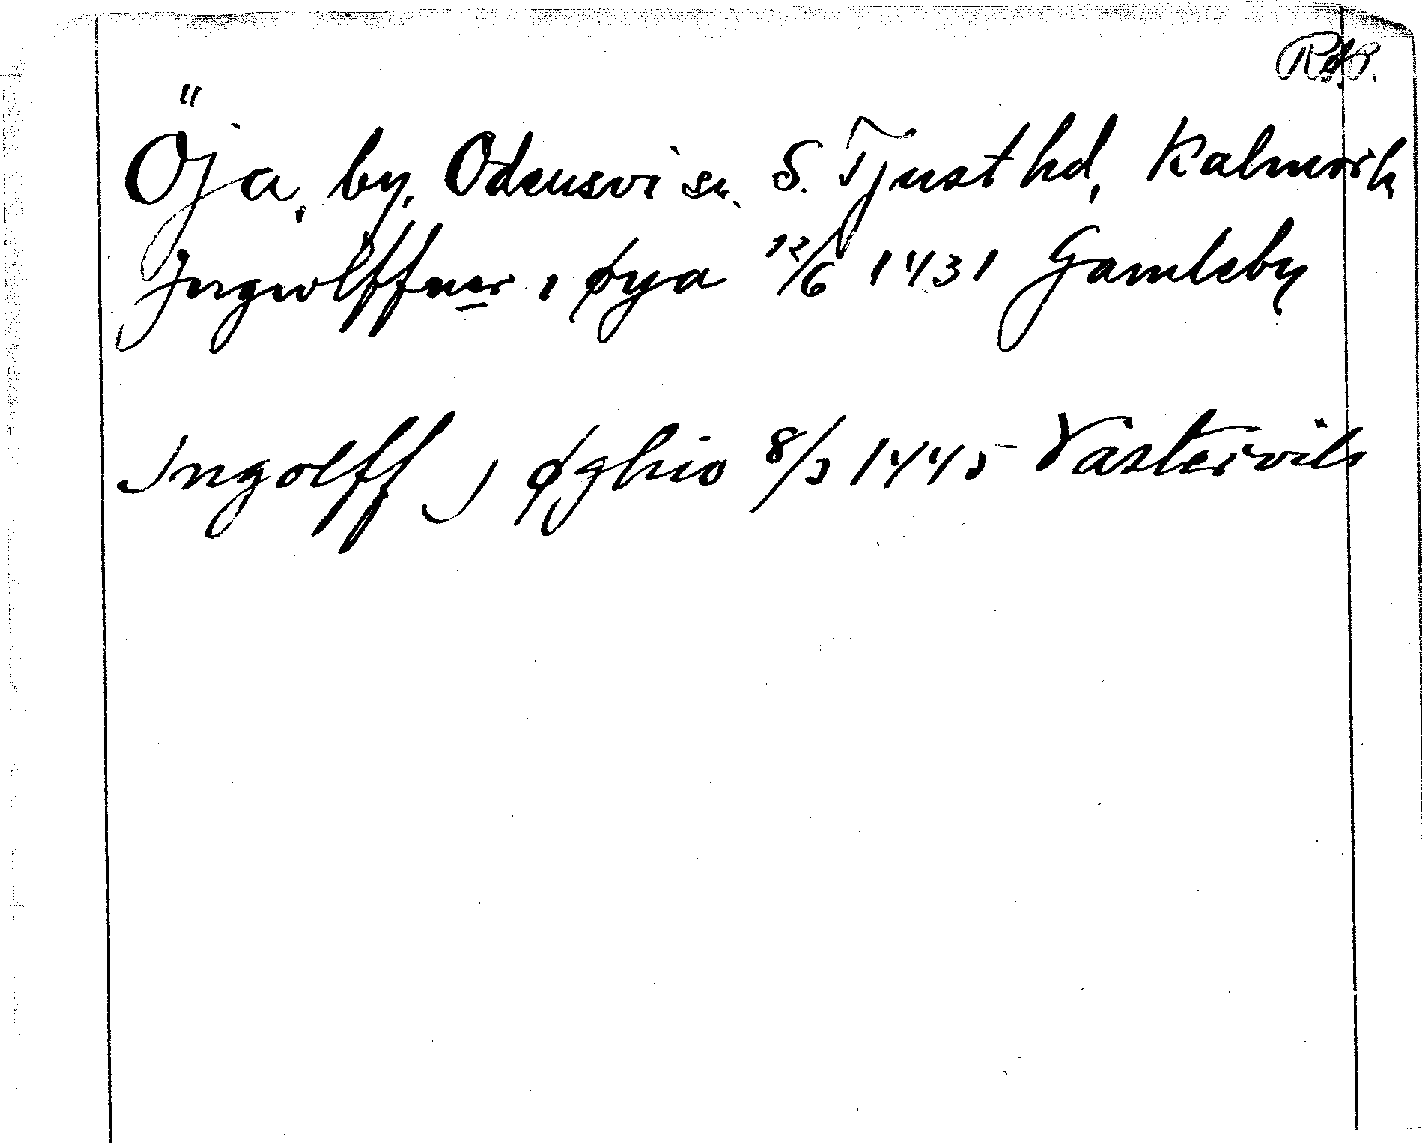 RAP.
Öja, by, Odensvi sn. S. Tjust hd, Kalmar
Ingwolffner i øya 12/6 1431 Gamleby
Ingolff j øghio 8/3 1445 Västervik